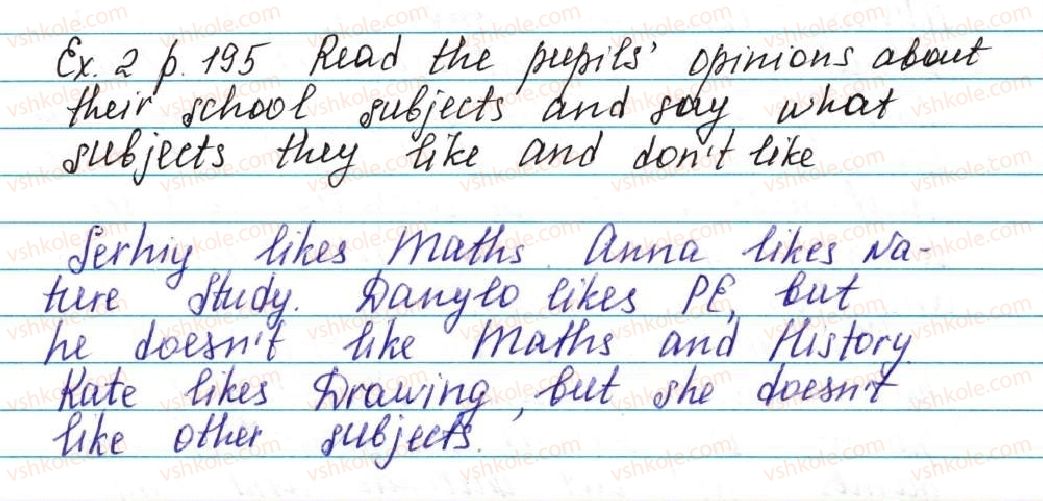 Ex. 2 p. 195 Read the pupils' opinions about
their school subjects and say what
subjects they like and don't like
Serhiy likes Maths. Anna likes Na-
ture Study. Danylo likes PE, but
he doesn't like Maths and History.
Kate likes Drawing, but she doesn't
like other subjects.